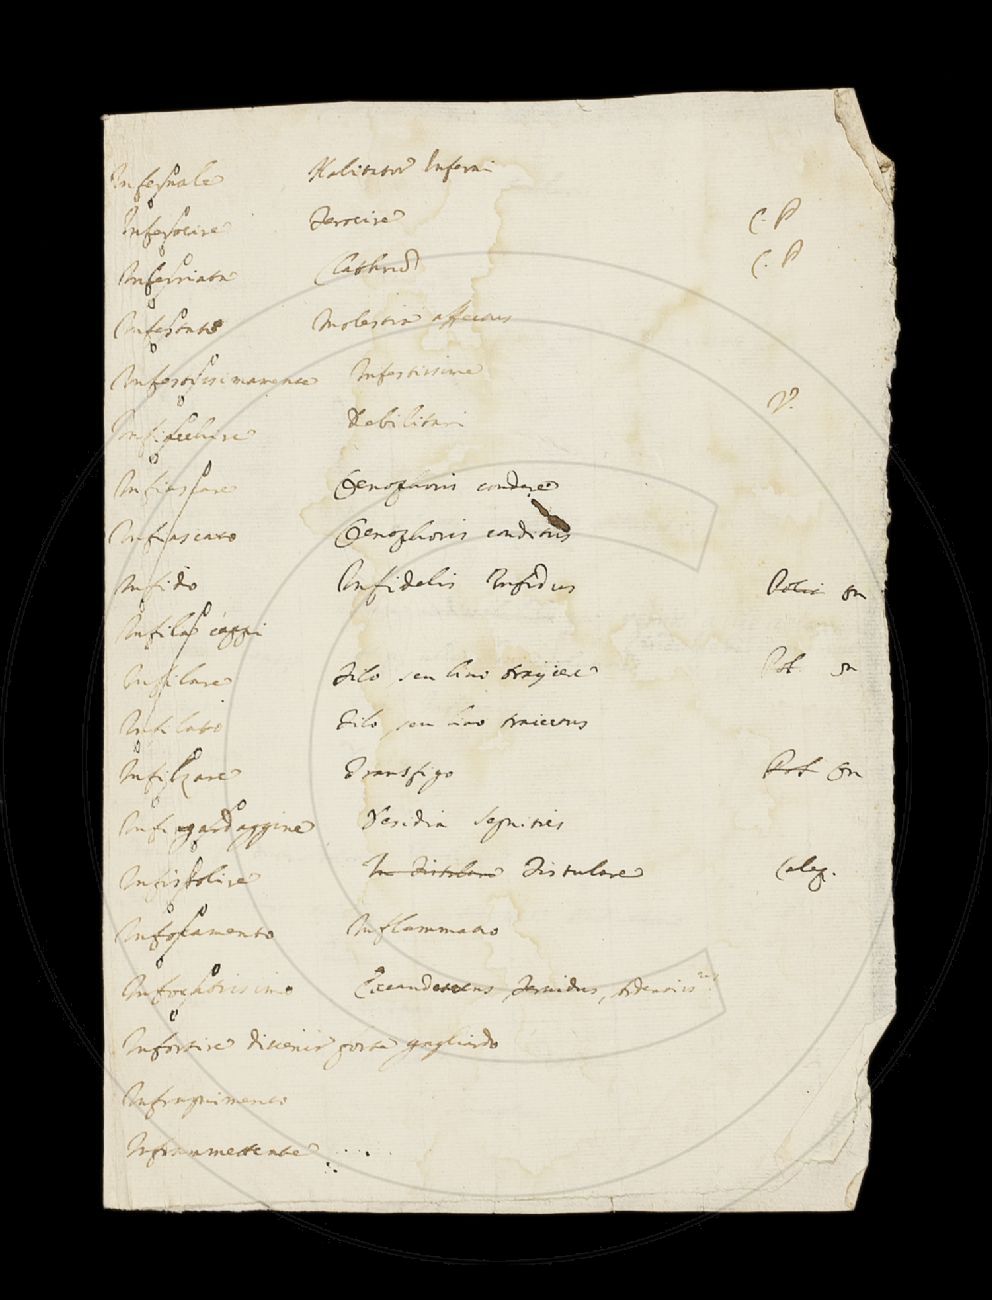 Infernale Habitator Inferni
Inferocire Ferocire C. P
Inferriata Clathrum C. P
Infesto Molestia afficiens
Infestissimamente Infestissime
Infi Debilitari V.
Infiascare Oenophoris condere
Infiascato Oenophoris conditus
Infido Infidelis Infidus on
Infila cappi
Infilare Filo seu lino traijcere Pol on
Infilato Filo seu lino traiectus
Infilzare Transfigo Pol on
Infingardaggine Desidia Segnities
Infistolire In Fistulam Fistulare Calep.
Infocamento Inflammatio
Infochatissimo Excandescens, Fervidus, Ardentis
Infortire divenir forte gagliardo
Infragnimento
Inframettente